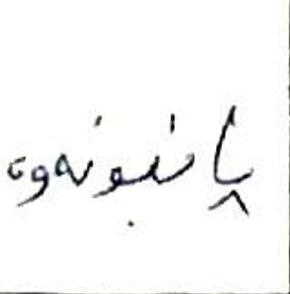 پانبونەوە